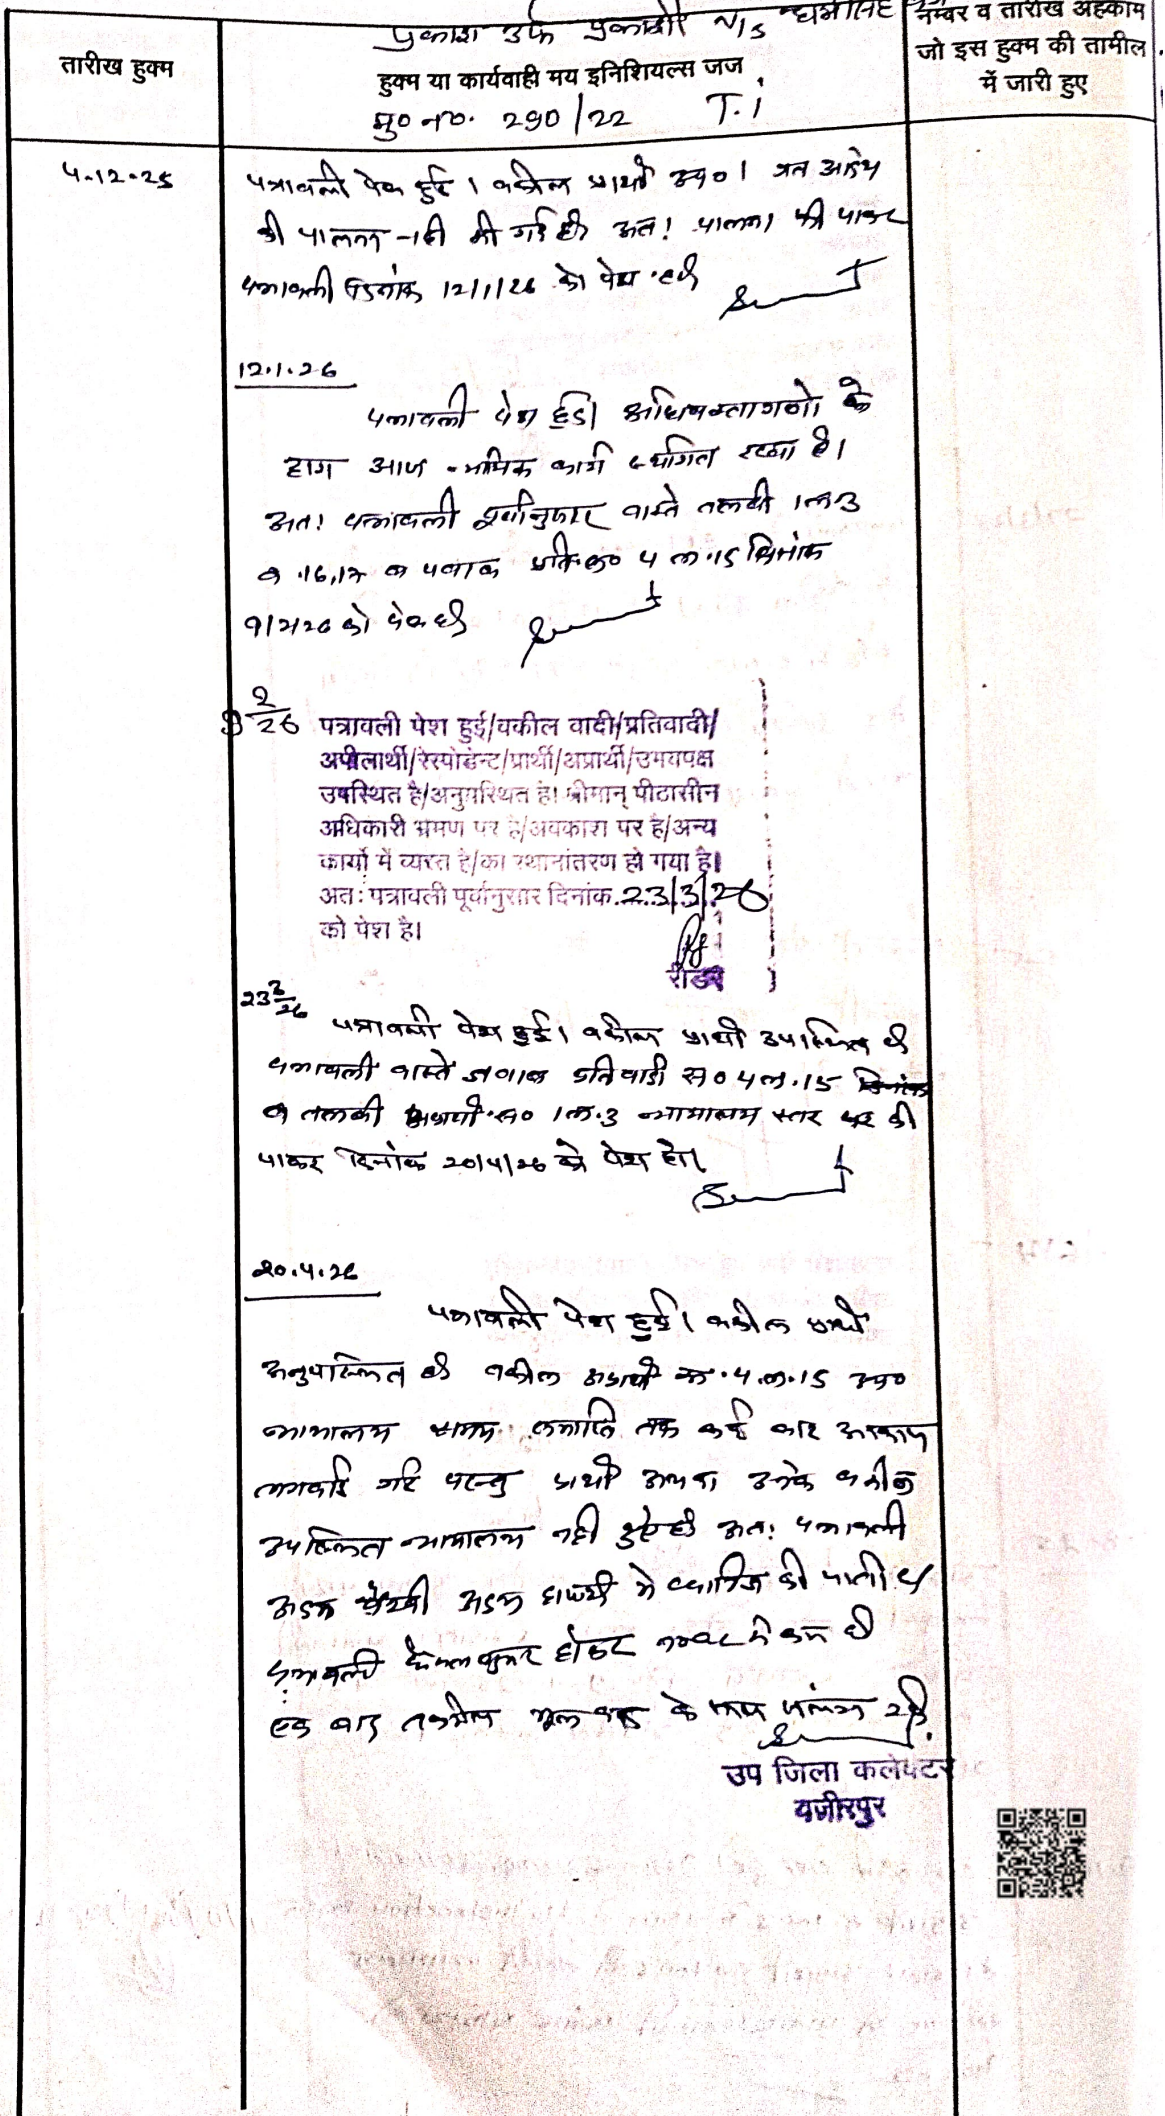 प्रकाश उर्फ प्रकाशी V/s धर्मसिंह
नम्बर व तारीख अहकाम
जो इस हुक्म की तामील
में जारी हुए
तारीख हुक्म
हुक्म या कार्यवाही मय इनिशियल्स जज
मु० न०. 290/22 T.i
4.12.25
पत्रावली पेश हुई। वकील प्रार्थी उप०। गत आदेश
की पालना नही की गई है। अतः पालना की जाकर
पत्रावली दिनांक 12/1/26 को पेश हो।
12.1.26
पत्रावली पेश हुई। अधिवक्तागणो के
द्वारा आज न्यायिक कार्य स्थगित रखा है।
अतः पत्रावली पूर्वानुसार वास्ते तलबी 1 ल.3
व 16,17 व जवाब प्रति.स० 4 ल.15 दिनांक
9/2/26 को पेश हो।
9 2/26
पत्रावली पेश हुई/वकील वादी/प्रतिवादी/
अपीलार्थी/रेस्पोडेन्ट/प्रार्थी/अप्रार्थी/उभयपक्ष
उपस्थित है/अनुपस्थित है। श्रीमान् पीठासीन
अधिकारी भ्रमण पर है/अवकाश पर है/अन्य
कार्यो में व्यस्त है/का स्थानांतरण हो गया है।
अतः पत्रावली पूर्वानुसार दिनांक 23/3/26
को पेश है।
रीडर
23 3/26
पत्रावली पेश हुई। वकील प्रार्थी उपस्थित है।
पत्रावली वास्ते जवाब प्रतिवादी स० 4 ल.15
व तलबी अप्रार्थी स० 1 ल.3 न्यायालय स्तर पर की
जाकर दिनांक 20/4/26 को पेश हो।
20.4.26
पत्रावली पेश हुई। वकील प्रार्थी
अनुपस्थित है। वकील अप्रार्थी स.4.ल.15 उप०
न्यायालय समय समाप्ति तक कई बार आवाज
लगवाई गई परन्तु प्रार्थी अथवा उनके वकील
उपस्थित न्यायालय नही हुऐ है। अतः पत्रावली
अदम पैरवी अदम हाजरी मे खारिज की जाती है।
पत्रावली फैसल शुमार होकर नम्बर से कम हो
बाद तकमील मूल वाद के साथ संलग्न रहे।
उप जिला कलेक्टर
वजीरपुर